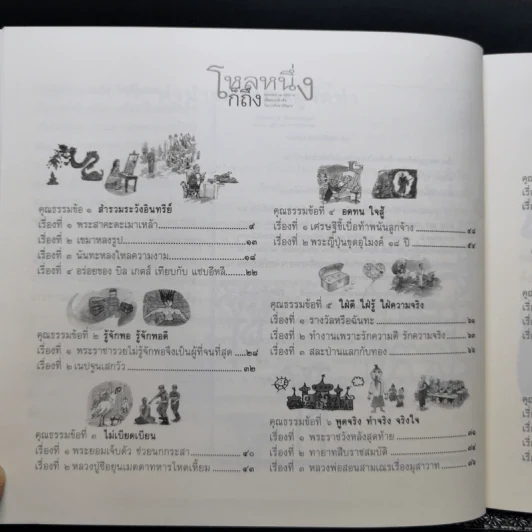 โหลหนึ่ง
ก็ถึง
คุณธรรมข้อ ๑ สำรวมระวังอินทรีย์
เรื่องที่ ๑ พระสาคะตะเมาเหล้า ๙
เรื่องที่ ๒ เขมาหลงรูป ๑๓
เรื่องที่ ๓ นันทะหลงใหลความงาม ๑๘
เรื่องที่ ๔ อร่อยของ บิล เกตส์ เทียบกับ แซบอีหลี ๒๒
คุณธรรมข้อที่ ๒ รู้จักพอ รู้จักพอดี
เรื่องที่ ๑ พระราชารวยไม่รู้จักพอจึงเป็นผู้ที่จนที่สุด ๒๘
เรื่องที่ ๒ เนปจูนเสกวัว ๓๒
คุณธรรมข้อที่ ๓ ไม่เบียดเบียน
เรื่องที่ ๑ พระยอมเจ็บตัว ช่วยนกกระสา ๔๐
เรื่องที่ ๒ หลวงปู่ชีอยุนเมตตาทหารโหดเหี้ยม ๔๓
คุณธรรมข้อที่ ๔ อดทน ใจสู้
เรื่องที่ ๑ เศรษฐีขี้เบื่อท้าพนันลูกจ้าง
เรื่องที่ ๒ พระญี่ปุ่นขุดอุโมงค์ ๑๘ ปี
คุณธรรมข้อที่ ๕ ใฝ่ดี ใฝ่รู้ ใฝ่ความจริง
เรื่องที่ ๑ รางวัลหรือฉันทะ
เรื่องที่ ๒ ทำงานเพราะรักความดี รักความจริง
เรื่องที่ ๓ สละบ้านแลกกับทอง
คุณธรรมข้อที่ ๖ พูดจริง ทำจริง จริงใจ
เรื่องที่ ๑ พระราชวังหลังสุดท้าย
เรื่องที่ ๒ ทายาทสืบราชสมบัติ
เรื่องที่ ๓ หลวงพ่อสอนสามเณรเรื่องมุสาวาท